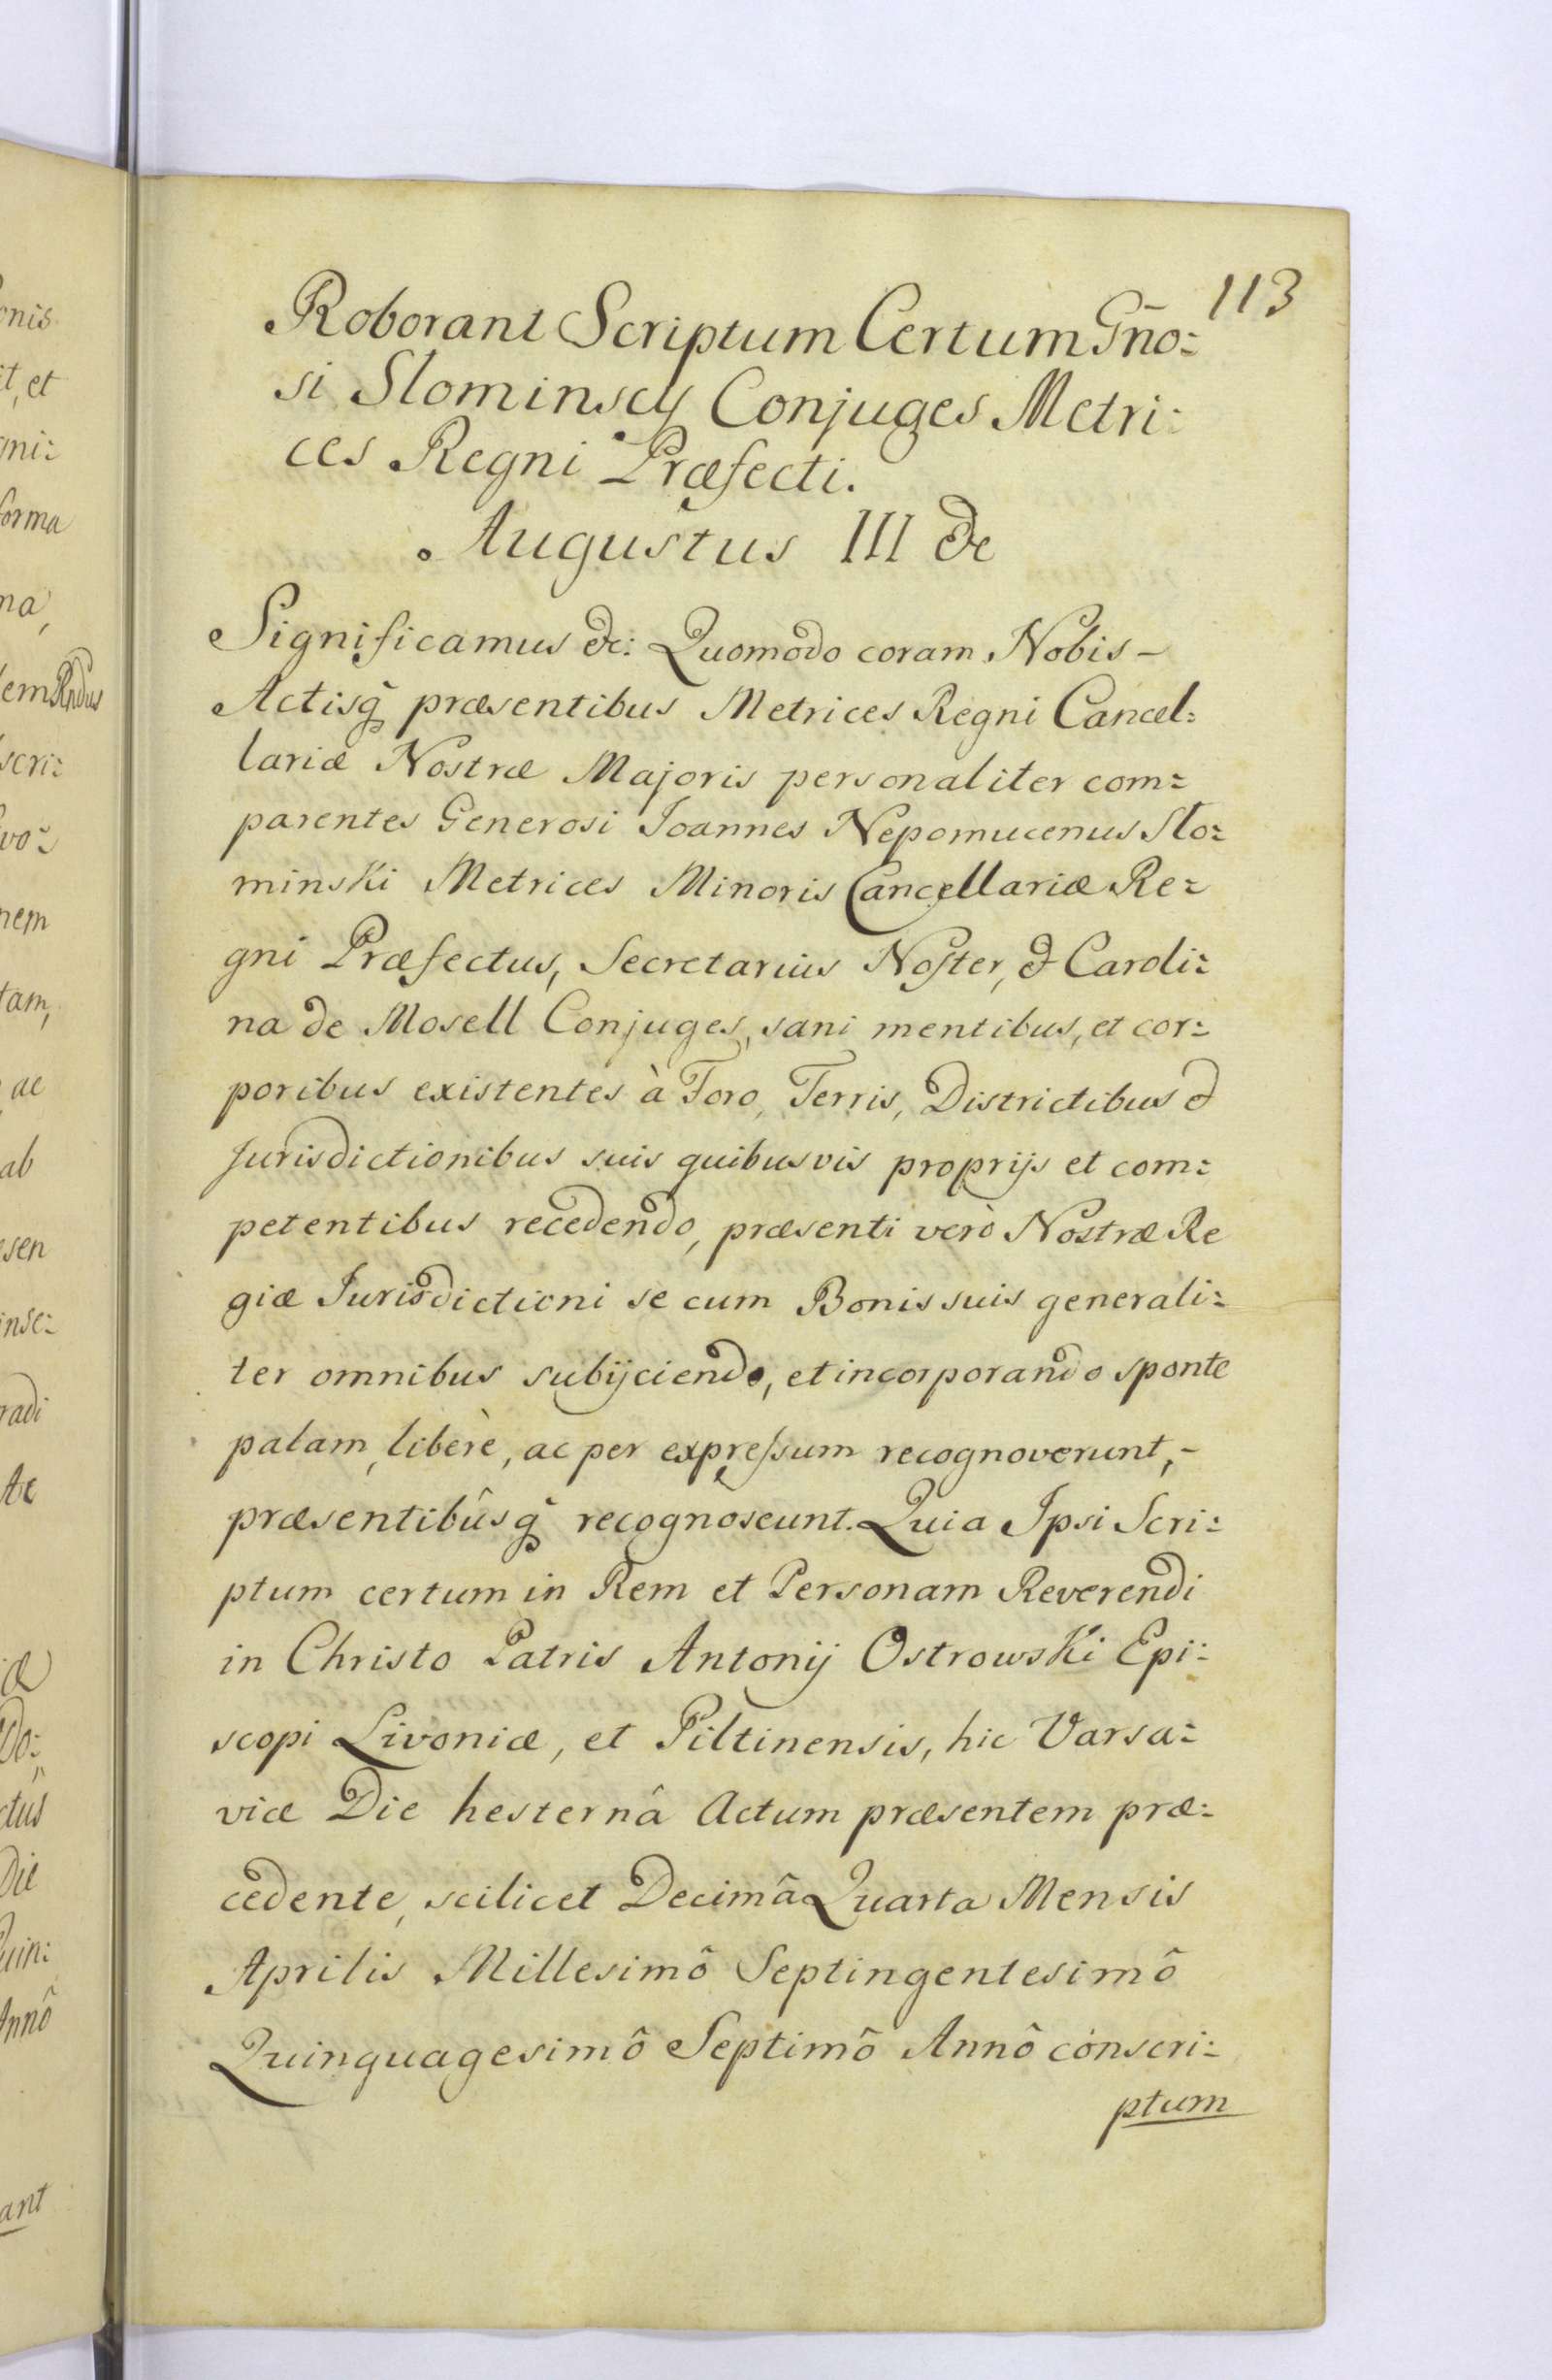 113
Roborant Scriptum Certum Gño:
si Slominscy Conjuges Metri:
ces Regni Præfecti.
Augustus III &c
Significamus &c: Quomodo coram Nobis -
Actisq̃ præsentibus Metrices Regni Cancel:
lariæ Nostræ Majoris personaliter com:
parentes Generosi Joannes Nepomucenus Slo:
minski Metrices Minoris Cancellariæ Re:
gni Præfectus, Secretarius Noster, & Caroli:
na de Mosell Conjuges, sani mentibus, et cor:
poribus existentes à Foro, Terris, Districtibus &
Jurisdictionibus suis quibusvis proprijs et com:
petentibus recedendo, præsenti verò Nostræ Re
giæ Jurisdictioni se cum Bonis suis generali:
ter omnibus subijciendo, et incorporando sponte
palam, liberè, ac per expressum recognoverunt, -
præsentibûsq̃ recognoscunt. Quia Ipsi Scri:
ptum certum in Rem et Personam Reverendi
in Christo Patris Antonij Ostrowski Epi:
scopi Livoniæ, et Piltinensis, hic Varsa:
viæ Die hesternâ Actum præsentem præ:
cedente, scilicet Decimâ Quarta Mensis
Aprilis Millesimô Septingentesimô
Quinquagesimô Septimô Annô conscri:
ptum